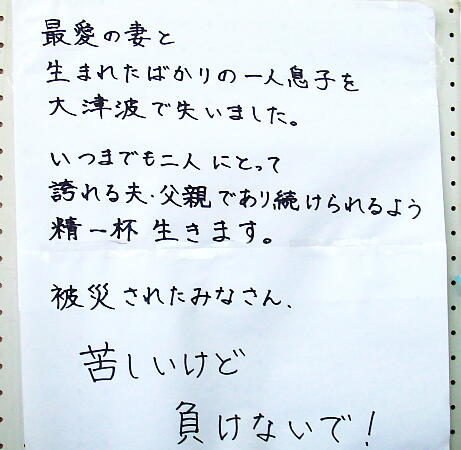 最愛の妻と
生まれたばかりの一人息子を
大津波で失いました。
いつまでも二人にとって
誇れる夫・父親であり続けられるよう
精一杯生きます。
被災されたみなさん、
苦しいけど
負けないで！